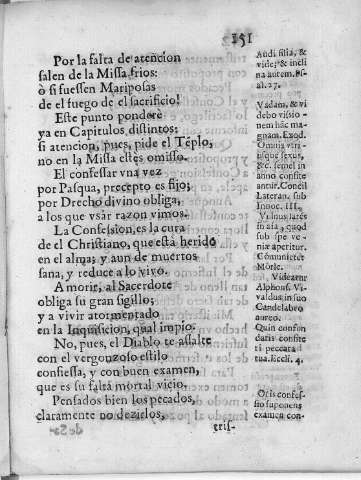 151
Por la falta de atencion
salen de la Missa frios:
ò si fuessen Mariposas
de el fuego de el sacrificio!
Este punto ponderè
ya en Capitulos distintos:
si atencion, pues, pide el Tẽplo,
no en la Missa estès omisso.
El confessar vna vez
por Pasqua, precepto es fijo;
por Derecho divino obliga,
a los que vsàr razon vimos.
La Confession, es la cura
de el Christiano, que està herido
en el alma; y aun de muertos
sana, y reduce a lo vivo.
A morir, al Sacerdote
obliga su gran sigillo;
y a vivir atormentado
en la Inquisicion, qual impio.
No, pues, el Diablo te assalte
con el vergonzoso estilo
confiessa, y con buen examen,
que es su falta mortal vicio.
Pensados bien los pecados,
claramente no dezirlos,
tris-
Audi filia, &
vide; & incli
na aurem. Ps-
al. 27.
Vadam, & vi
debo vissio-
nem hãc ma-
gnam. Exod.
Omnis vtri-
usque sexus,
&c. semel in
anno consite
antur. Concil
Lateran. sub
Innoc. III.
quod
sub spe ve-
niæ aperitur.
Videatur
Alphons. Vi-
valdus in suo
Candelabro
aureo.
Quin confun
daris confite
ri peccata
tua. Eccli. 4.
Otis confes-
sio suponens
examen con-